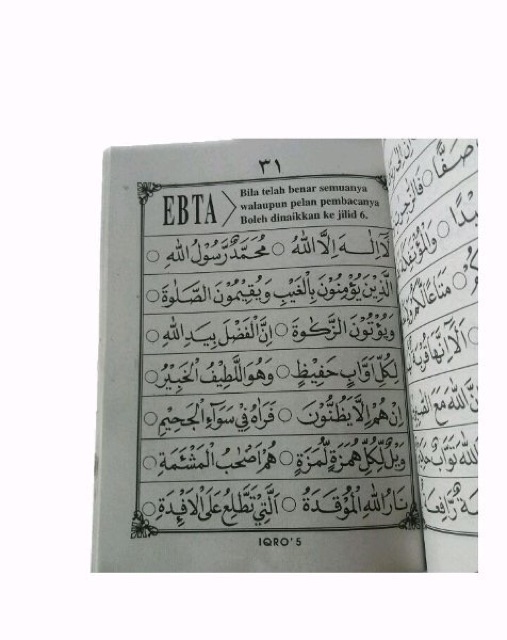 ٣١
EBTA
Bila telah benar semuanya
walaupun pelan pembacanya
Boleh dinaikkan ke jilid 6.
لَا اِلٰهَ اِلَّا اللّٰهُ ○ مُحَمَّدٌ رَّسُوْلُ اللّٰهِ ○
الَّذِيْنَ يُؤْمِنُوْنَ بِالْغَيْبِ وَيُقِيْمُوْنَ الصَّلٰوةَ ○
وَيُؤْتُوْنَ الزَّكٰوةَ ○ اِنَّ الْفَضْلَ بِيَدِ اللّٰهِ ○
لِكُلِّ اَوَّابٍ حَفِيْظٍ ○ وَهُوَ اللَّطِيْفُ الْخَبِيْرُ ○
اِنْ هُمْ اِلَّا يَظُنُّوْنَ ○ فَرَاٰهُ فِيْ سَوَآءِ الْجَحِيْمِ ○
وَيْلٌ لِّكُلِّ هُمَزَةٍ لُّمَزَةٍ ○ هُمْ اَصْحٰبُ الْمَشْئَمَةِ ○
نَارُ اللّٰهِ الْمُوْقَدَةُ ○ الَّتِيْ تَطَّلِعُ عَلَى الْاَفْئِدَةِ ○
IQRO'5
صَفًّا
مَتَاعًا لَّكُمْ
اَلَا اِنَّهَا
اللّٰهَ مَعَ
اللّٰهَ تَوَّابٌ